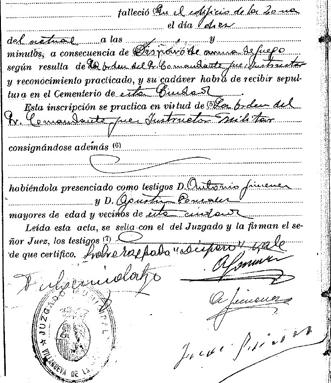 falleció En el edificio de la Zona
el día diez
del actual a las y
minutos, a consecuencia de Disparo de arma de fuego
según resulta de la orden del Sr. Comandante juez Instructor
y reconocimiento practicado, y su cadáver habrá de recibir sepul-
tura en el Cementerio de esta Ciudad
Esta inscripción se practica en virtud de la orden del
Sr. Comandante juez Instructor Militar
consignándose además (6)
habiéndola presenciado como testigos D. Antonio Jimenez
y D. Agustin
mayores de edad y vecinos de esta ciudad
Leída esta acta, se sella con el del Juzgado y la firman el se-
ñor Juez, los testigos (7)
de que certifico. Sobre raspado "disparo" vale
A Jimenez
JUZGADO MUNICIPAL
VILLANUEVA DE LA